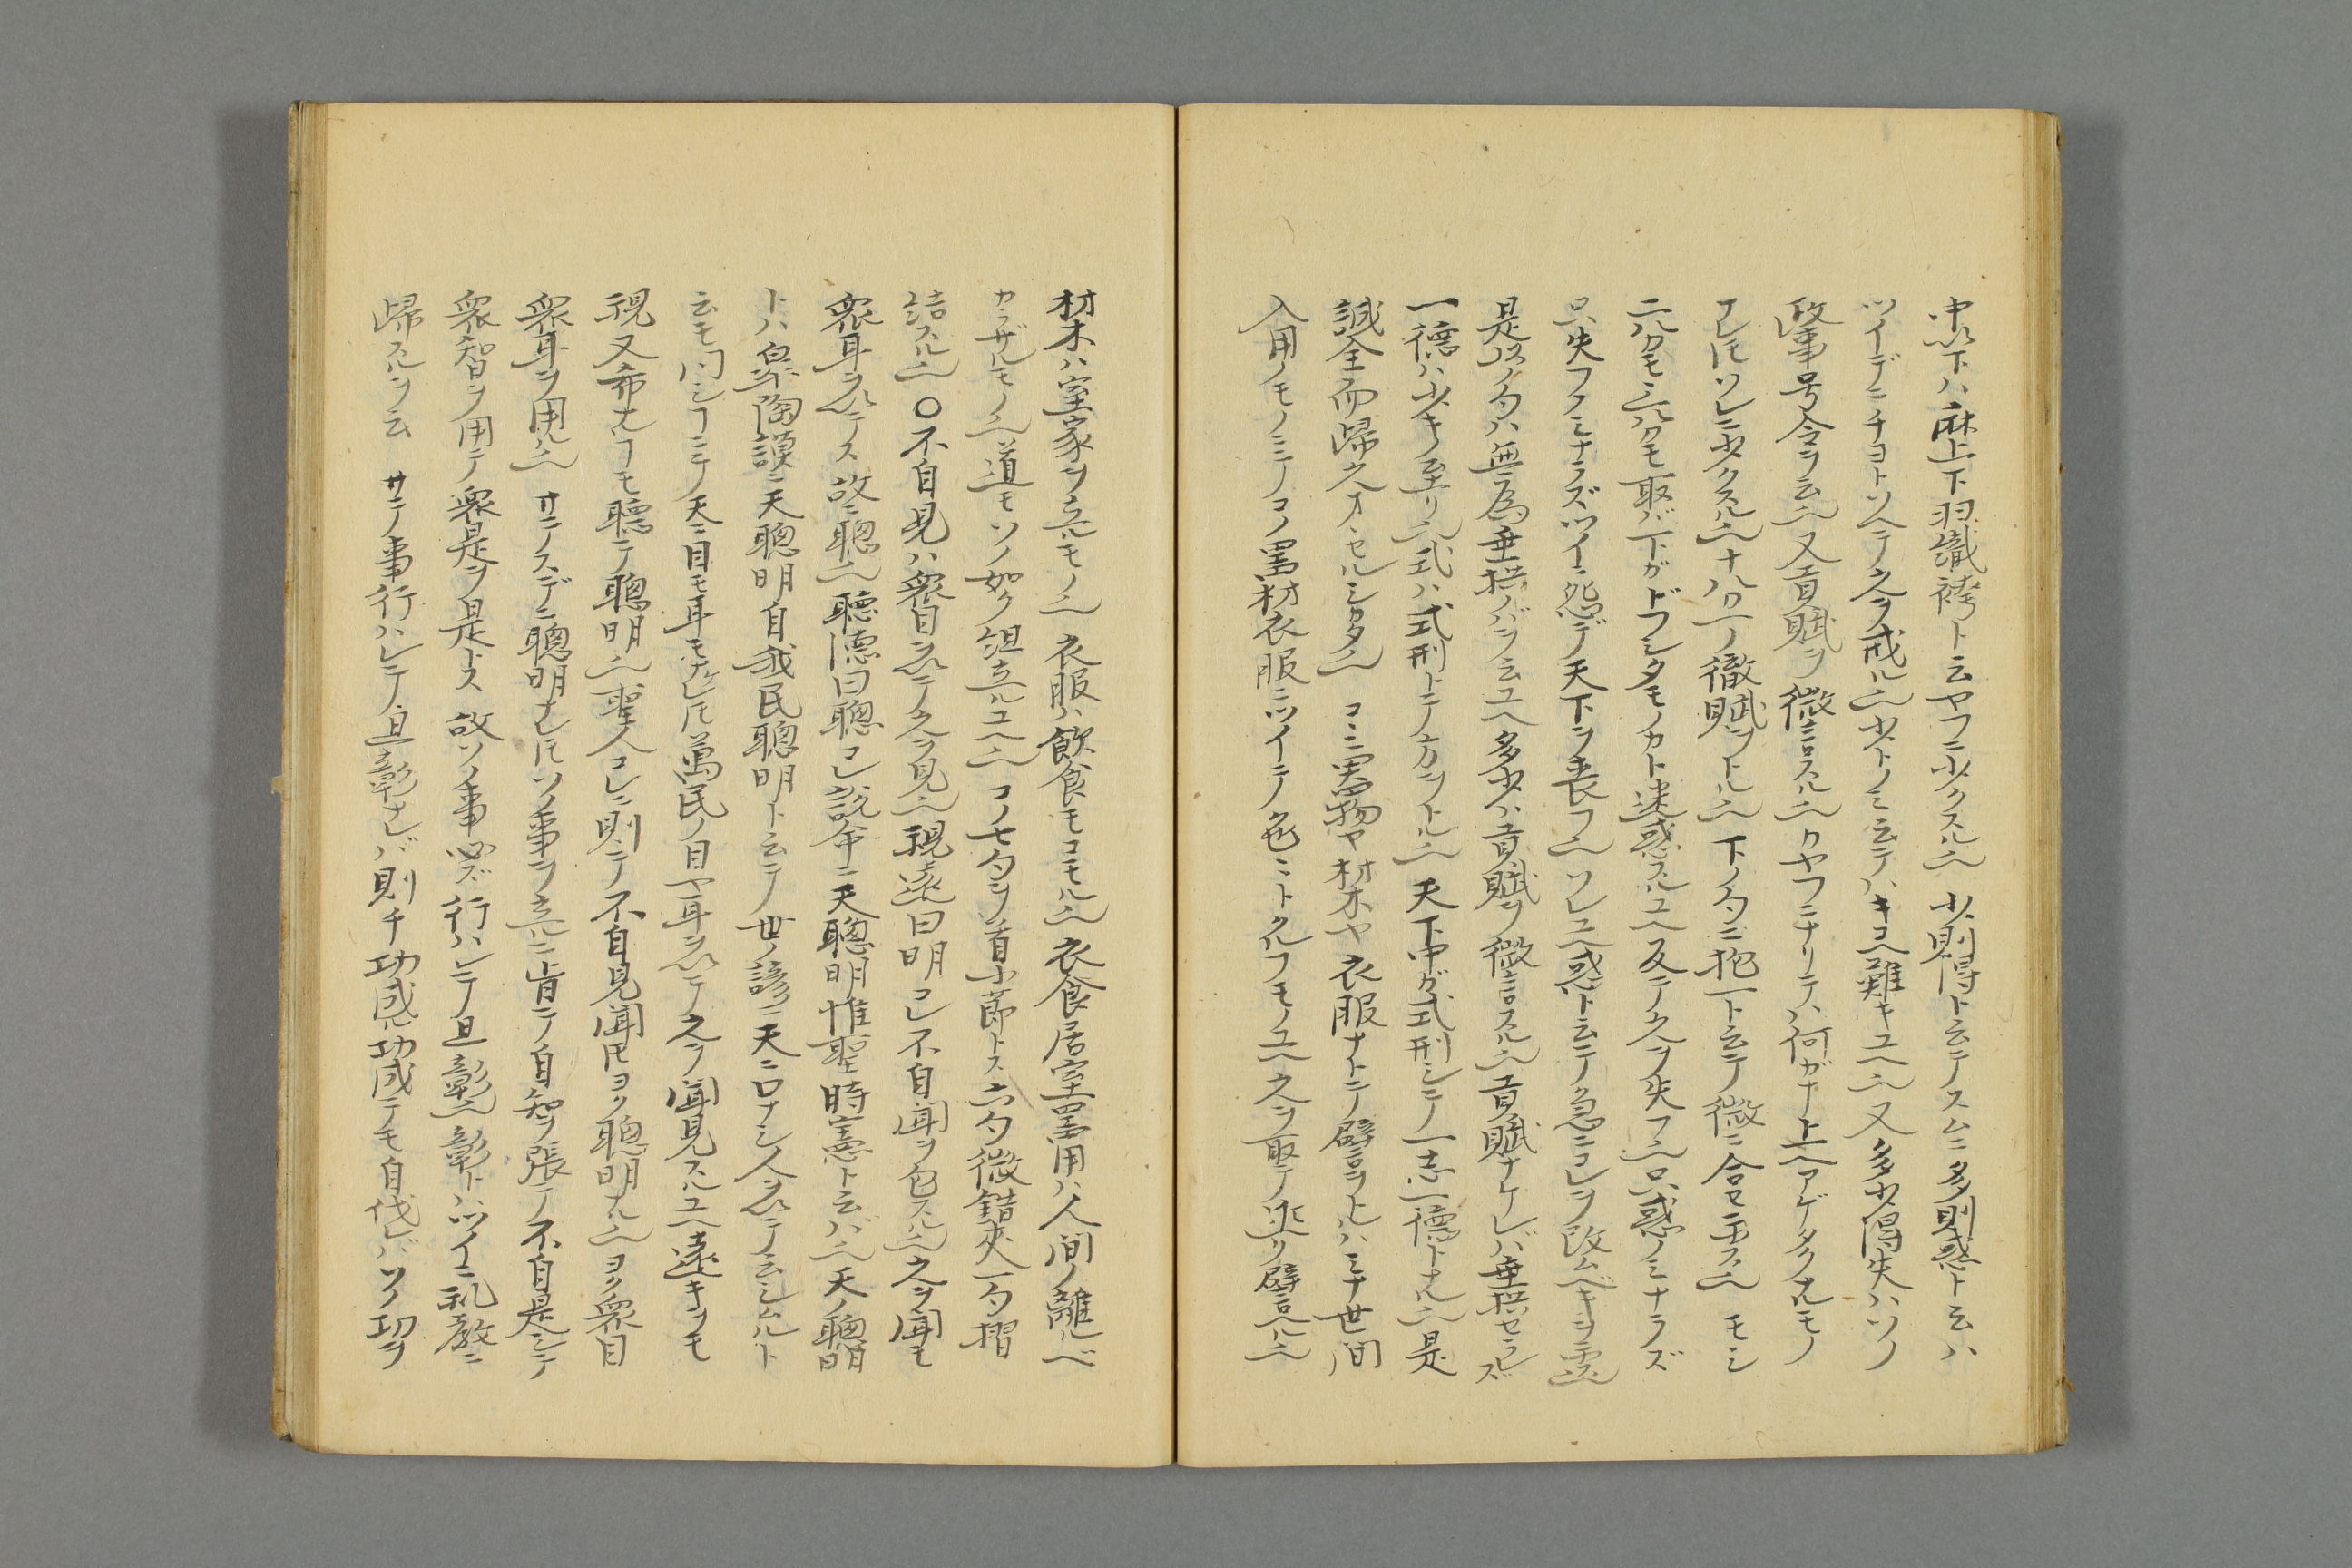 中以下ハ麻上下羽織袴ト云ヤフニ少クスル也 少則得ト云テスムニ多則惑ト云ハ
ツイデニチヨトソヘテ之ヲ戒ル也少トノミ云テハキコヘ難キユヘ也又多少得失ハソノ
政事号令ヲ云也又貢賦ヲ微言スル也カヤフニナリテハ何ガナ上ヘアゲタクナルモノ
ナレ𪜈ソレニ少クスル也十ハ一ノ徹賦ヲトル也 下ノ句ニ抱一ト云テ微ニ合セ示ス也 モシ
二ハカモ三ハカモ取バ下ガドフシタモノカト迷惑スルユヘ反テ之ヲ失フ也只惑ノミナラズ
只失フノミナラズツイニ怨デ天下ヲ喪フ也ソレユヘ惑ト云テ急ニコレヲ改ムベキヲ霊ス也
是以ノ句ハ無為垂拱ノバヲ云ユヘ多少ハ貢賦ヲ微言スル也貢賦ナケレバ垂拱セラレズ
一徳ハ少キノ至リ也式ハ式刑トテノ方ヲトル也 天下中ガ式刑シテノ一志一徳トナル也是
誠全而歸之オヽセルシカタ也 コヽニ実物ヤ材木ヤ衣服ナトニテ譬ヲトルハミナ世間
入用ノモノミニテコノ里材衣服ニツイテノ色ミトクルフモノユヘ之ヲ取テ並リ譬ヘル也
材木ハ室家ヲ立ルモノ也 衣服ハ飲食モコモル也 衣食居室里用ハ人間ノ離ルベ
カラザルモノ也道モソノ如ク組立ルユヘ也 コノ七句ヲ首小節トス六句微錯夾一句摺
結スル也 〇不自見ハ衆目ヲ以テ之ヲ見也視遠曰明コレ不自聞ヲ包スル也之ヲ聞モ
衆耳ヲ以テス故ニ聰也聴徳曰聰コレ説命ニ天聰明惟聖時憲ト云バ也天ノ聰明
トハ皐陶謨ニ天聰明自我民聰明ト云テノ世ノ諺ニ天ニロナシ人ヲ以テ云シムルト
云モ同シフニテ天ニ目モ耳モナケレ𪜈萬民ノ目ヤ耳ヲ以テ之ヲ聞見スルユヘ遠キヲモ
視又希ナルフモ聽テ聰明也聖人コレニ則テ不自見聞𪜈ヨク聰明ナル也ヨク衆目
衆耳ヲ用ル也 サテスデニ聰明ナレ𪜈ソノ事ヲ立ルニ肯テ自知ヲ張テ不自是シテ
衆智ヲ用テ衆是ヲ是トス 故ソノ事必ズ行ハレテ且彰也彰トハツイニ礼教ニ
歸スルヲ云 サテノ事行ハレテ且彰ナレバ則チ功成ル功成テモ自伐レバソノ功ヲ